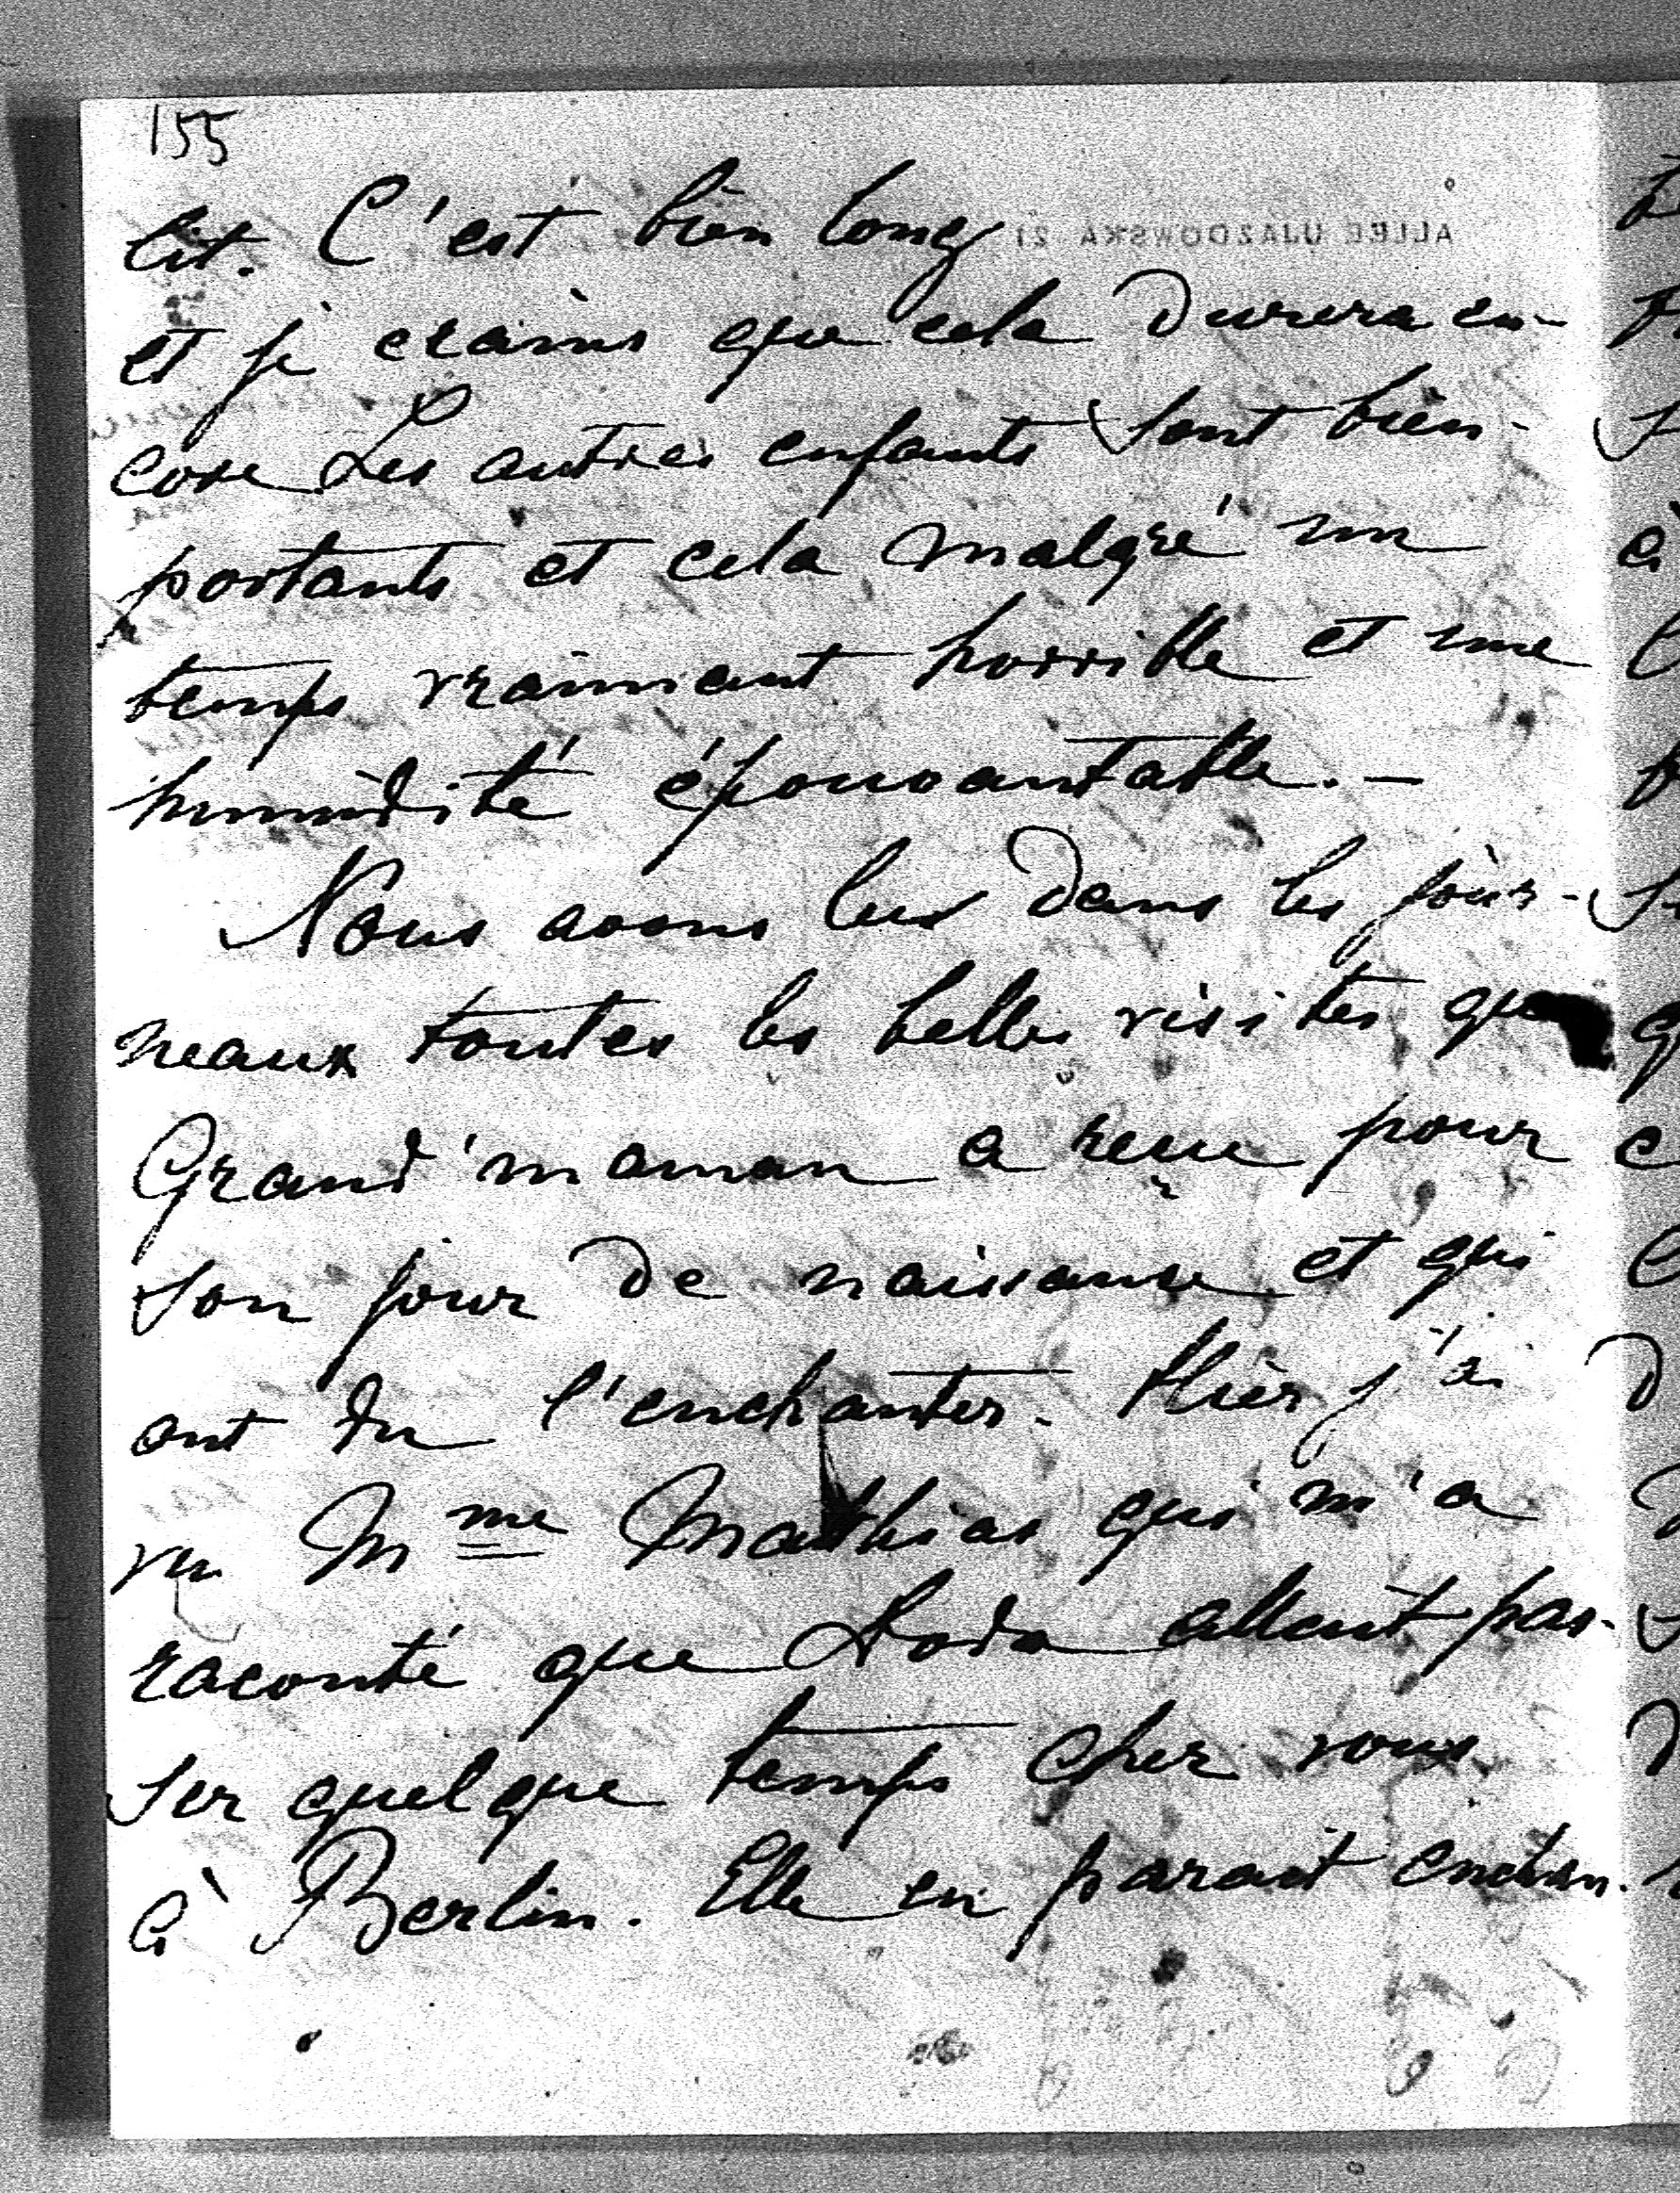 155
lit. C'est bien long
et je crains que cela durera en-
core. Les autres enfants sont bien-
portants et cela malgré un
temps vraiment horrible et une
humidité épouvantable. —
Nous avons lus dans les jour-
neaux toutes les belles visites que
Grand'maman a reçue pour
son jour de naissance et qui
ont du l'enchanter. Hier j'ai
vu Mme Mathias qui m'a
raconté que allait pas-
ser quelque temps chez vous
à Berlin. Elle en parait enchan-
ALLÉE UJAZDOWSKA 21